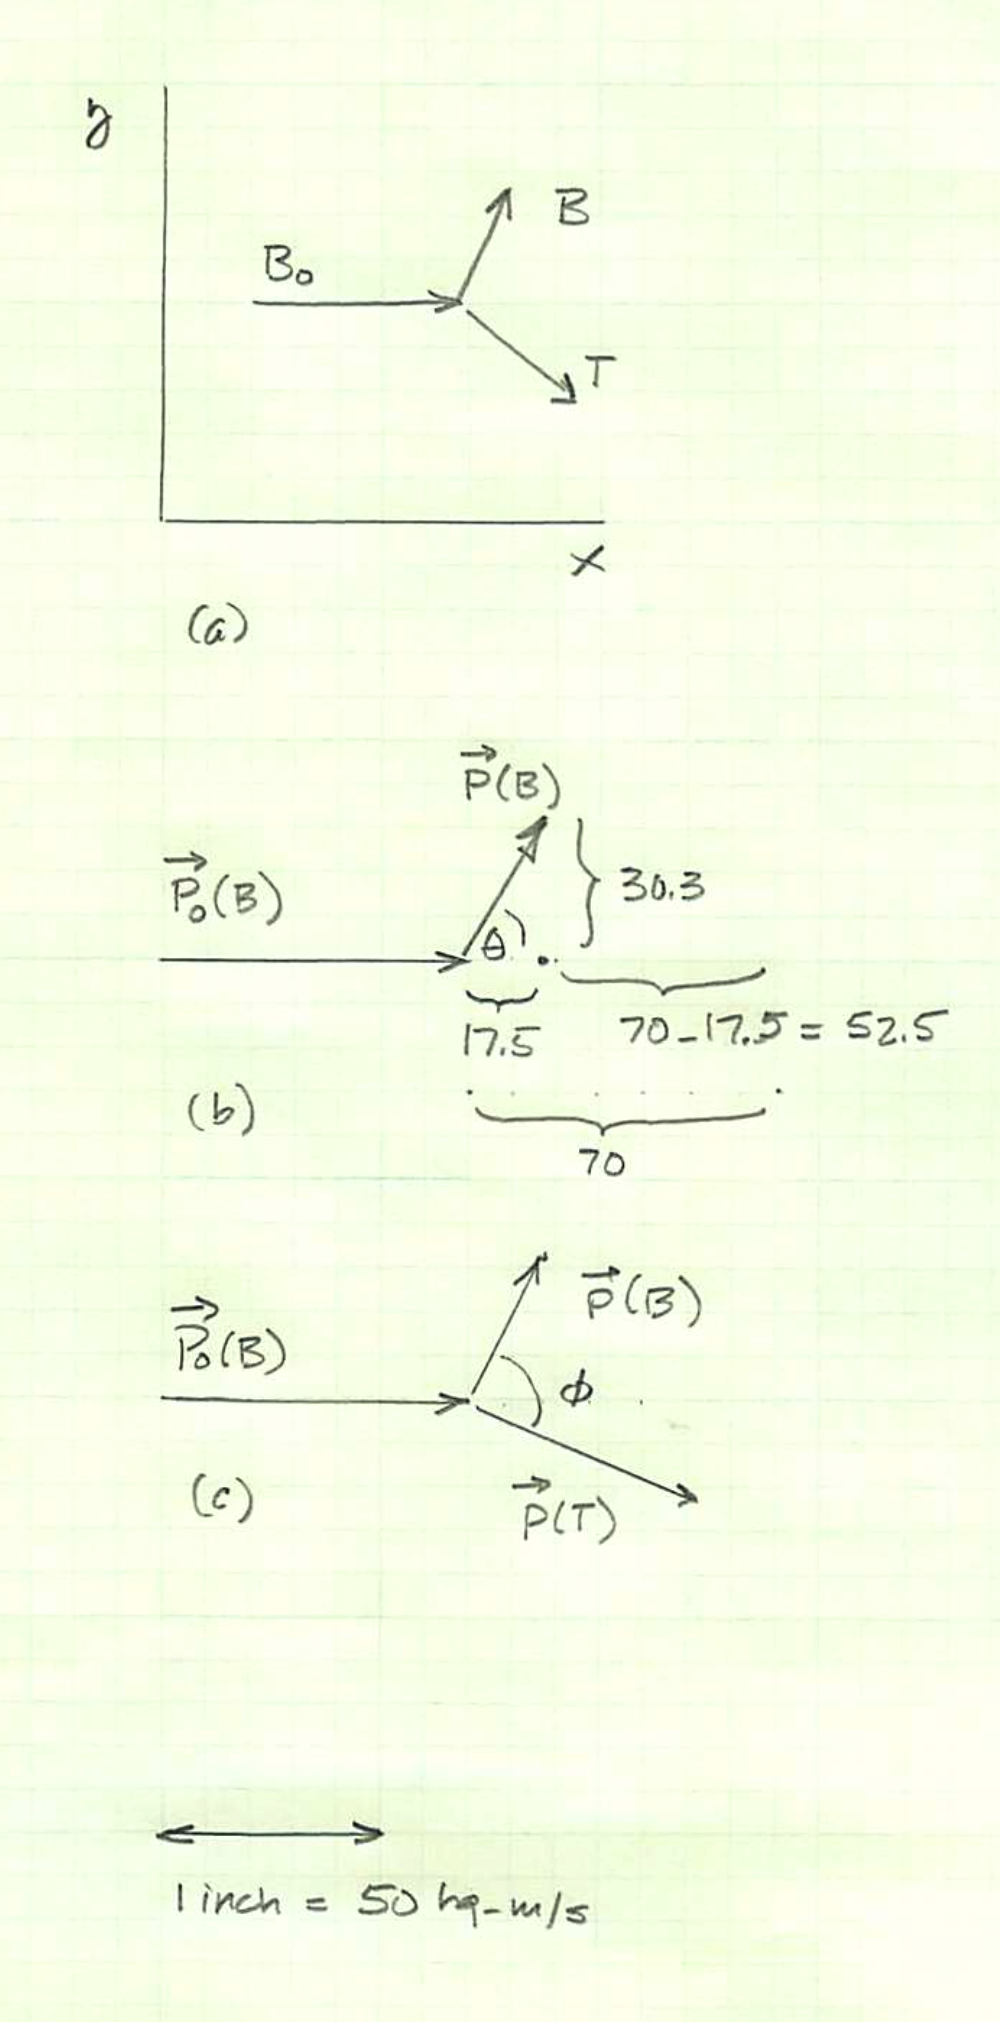 y
B₀
B
T
x
(a)
P⃗(B)
P⃗₀(B)
θ
30.3
17.5
70-17.5 = 52.5
(b)
70
P⃗(B)
P⃗₀(B)
ϕ
(c)
P⃗(T)
1 inch = 50 kg-m/s